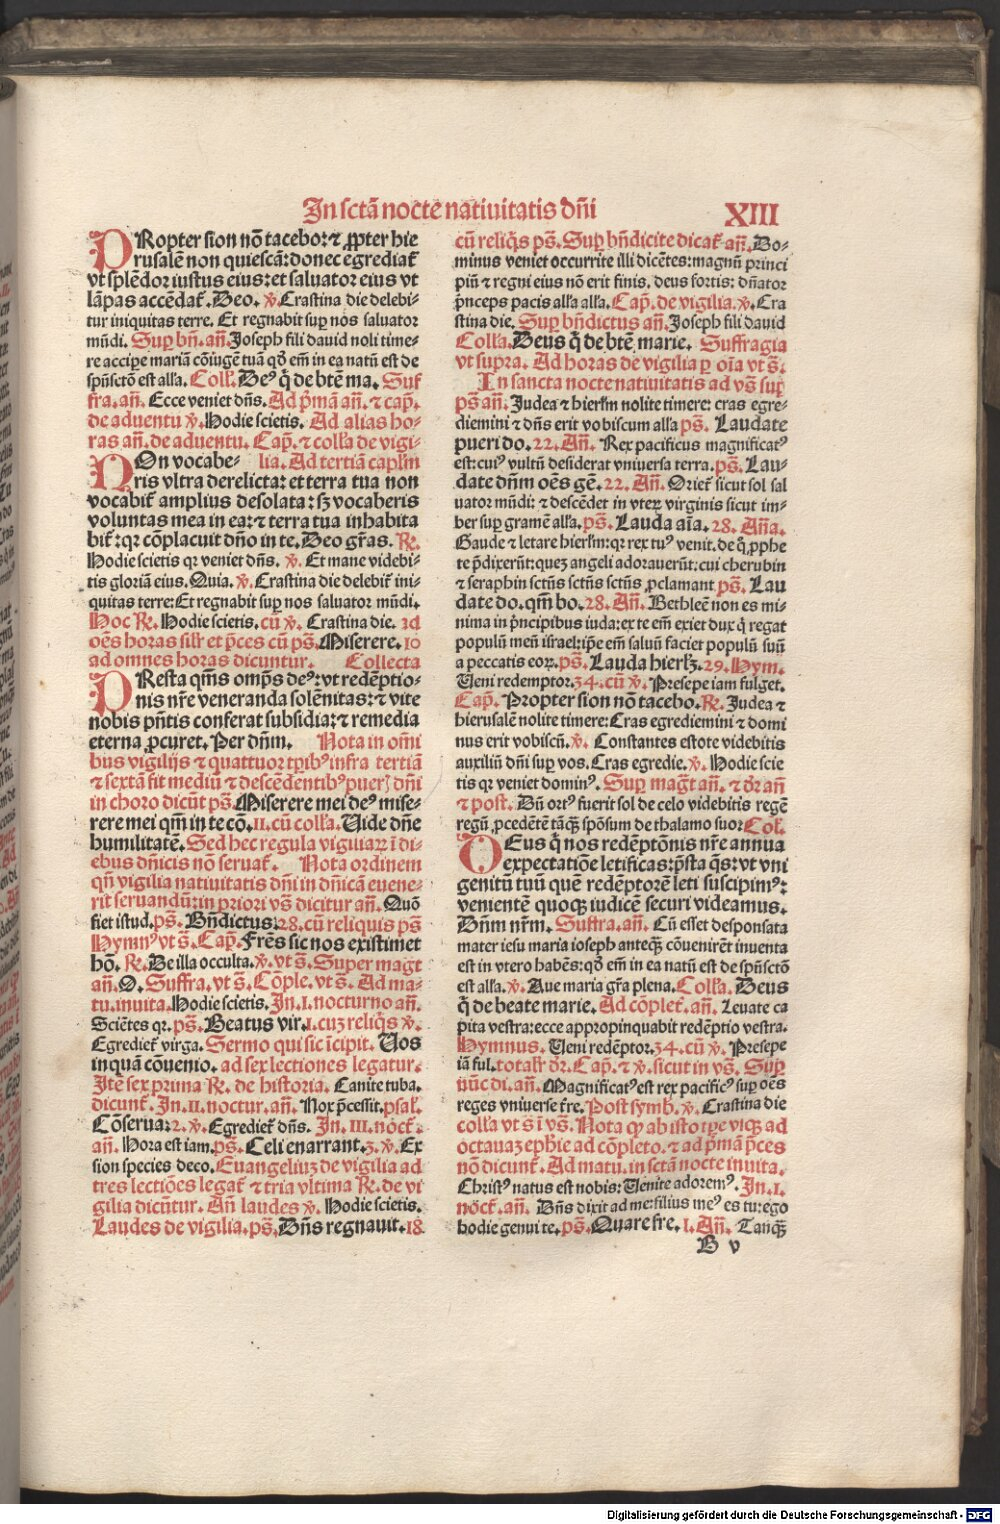 In sctā nocte natiuitatis dn̄i XIII
PRopter sion nō tacebo: ⁊ ꝓpter hie
rusalē non quiescā: donec egrediat᷑
vt splēdor iustus eius: et saluator eius vt
lāpas accēdat᷑. Deo. ℣. Crastina die delebi-
tur iniquitas terre. Et regnabit suꝑ nos saluator
mūdi. Suꝑ bn̄. an̄. Joseph fili dauid noli time-
re accipe mariā cōiugē tuā qd̓ em̄ in ea natū est de
spūsctō est alľa. Colľ. Deꝰ q̇ de btē ma. Suf
fra. an̄. Ecce veniet dn̄s. Ad p̄mā an̄. ⁊ cap̄.
de aduentu ℣. Hodie scietis. Ad alias ho-
ras an̄. de aduentu. Cap̄. ⁊ collā de vigi-
NOn vocabe- lia. Ad tertiā capľm
ris vltra derelicta: et terra tua non
vocabit᷑ amplius desolata: sꝫ vocaberis
voluntas mea in ea: ⁊ terra tua inhabita
bit᷑: qꝛ cōplacuit dn̄o in te. Deo gr̄as. ℟.
Hodie scietis qꝛ veniet dn̄s. ℣. Et mane videbi-
tis gloriā eius. Quia. ℣. Crastina die delebit᷑ ini-
quitas terre: Et regnabit suꝑ nos saluator mūdi.
Hoc ℟. Hodie scietis. cū ℣. Crastina die. ad
oēs horas silr et p̄ces cū ps̄. Miserere. 10
ad omnes horas dicuntur. Collecta
PResta qm̄s omp̄s deꝰ: vt redēptio-
nis nr̄e veneranda solēnitas: ⁊ vite
nobis pn̄tis conferat subsidia: ⁊ remedia
eterna ꝓcuret. Per dn̄m. Nota in om̄i
bus vigilijs ⁊ quattuor tꝑibꝰ infra tertiā
⁊ sextā fit mediū ⁊ descēdentibꝰ puerꝭ dn̄i
in choro dicūt ps̄. Miserere mei deꝰ mise-
rere mei qm̄ in te cō. II. cū collā. Vide dn̄e
humilitatē. Sed hec regula vigiliaꝝ ī di-
ebus dn̄icis nō seruat᷑. Nota ordinem
qn̄ vigilia natiuitatis dn̄i in dn̄icā euene-
rit seruandū: in priori vs̄ dicitur an̄. Quō
fiet istud. ps̄. Bn̄dictus. 28. cū reliquis ps̄
Hymnꝰ vt s̄. Cap̄. Frēs sic nos existimet
hō. ℟. De illa occulta. ℣. vt s̄. Super magt
an̄. O. Suffra. vt s̄. Cōple. vt s̄. Ad ma-
tu. inuita. Hodie scietis. In. I. nocturno an̄.
Sciētes qꝛ. ps̄. Beatus vir. I. cuꝫ reliq̄s ℣.
Egrediet᷑ virga. Sermo qui sic īcipit. Vos
inquā cōuenio. ad sex lectiones legatur.
Itē sex prima ℟. de historia. Canite tuba.
dicunt᷑. In. II. noctur. an̄. Nox p̄cessit. psal.
Cōserua. 2. ℣. Egrediet᷑ dn̄s. In. III. nōct᷑.
an̄. Hora est iam. ps̄. Celi enarrant. 3. ℣. Ex
sion species deco. Euangeliuꝫ de vigilia ad
tres lectiōes legat᷑ ⁊ tria vltima ℟. de vi
gilia dicūtur. An̄ laudes ℣. Hodie scietis.
Laudes de vigilia. ps̄. Dn̄s regnauit. 18.
cū reliq̄s ps̄. Suꝑ bn̄dicite dicat᷑ an̄. Do-
minus veniet occurrite illi dicētes: magnū princi
piū ⁊ regni eius nō erit finis. deus fortis: dn̄ator
p̄nceps pacis alľa alľa. Cap̄. de vigilia. ℣. Cra
stina die. Suꝑ bn̄dictus an̄. Joseph fili dauid
Collā. Deus q̇ de btē marie. Suffragia
vt supra. Ad horas de vigilia ꝑ oīa vt s̄.
In sancta nocte natiuitatis ad vs̄ suꝑ
ps̄ an̄. Judea ⁊ hierľm nolite timere: cras egre-
diemini ⁊ dn̄s erit vobiscum alľa ps̄. Laudate
pueri do. 22. An̄. Rex pacificus magnificatꝰ
est: cuiꝰ vultū desiderat vniuersa terra. ps̄. Lau-
date dn̄m oēs gē. 22. An̄. Oriet᷑ sicut sol sal
uator mūdi: ⁊ descēdet in vteꝝ virginis sicut im-
ber suꝑ gramē alľa. ps̄. Lauda aīa. 28. An̄a.
Gaude ⁊ letare hierľm: qꝛ rex tuꝰ venit. de q̇ ꝓphe
te p̄dixerūt: queꝫ angeli adorauerūt: cui cherubin
⁊ seraphin sctūs sctūs sctūs ꝓclamant ps̄. Lau
date do. qm̄ bo. 28. An̄. Bethleē non es mi-
nima in p̄ncipibus iuda: ex te em̄ exiet dux q̇ regat
populū meū israel: ip̄e em̄ saluū faciet populū suū
a peccatis eoꝝ. ps̄. Lauda hierľꝫ. 29. Hym.
Veni redemptor. 34. cū ℣. Presepe iam fulget.
Cap̄. Propter sion nō tacebo. ℟. Judea ⁊
hierusalē nolite timere: Cras egrediemini ⁊ domi
nus erit vobiscū. ℣. Constantes estote videbitis
auxiliū dn̄i suꝑ vos. Cras egredie. ℣. Hodie scie
tis qꝛ veniet dominꝰ. Suꝑ magt᷑ an̄. ⁊ dr̄ an̄
⁊ post. Dū ortꝰ fuerit sol de celo videbitis regē
regū ꝓcedētē tāqꝫ spōsum de thalamo suo Colľ.
DEus q̇ nos redēptōnis nr̄e annua
expectatiōe letificas: p̄sta q̄s: vt vni
genitū tuū quē redēptorē leti suscipimꝰ:
venientē quoqꝫ iudicē securi videamus.
Dn̄m nr̄m. Suffra. an̄. Cū esset desponsata
mater iesu maria ioseph anteqꝫ cōuenirēt inuenta
est in vtero habēs: qd̓ em̄ in ea natū est de spūsctō
est alľa. ℣. Aue maria gr̄a plena. Collā. Deus
q̇ de beate marie. Ad cōplet᷑. an̄. Leuate ca
pita vestra: ecce appropinquabit redēptio vestra.
Hymnus. Veni redēptor. 34. cū ℣. Presepe
iā ful. totalr̄ dr̄. Cap̄. ⁊ ℣. sicut in vs̄. Suꝑ
nūc di. an̄. Magnificatꝰ est rex pacificꝰ suꝑ oēs
reges vniuerse tr̄re. Post symb. ℣. Crastina die
collā vt s̄ ī vs̄. Nota ꝙ ab isto tꝑe vsqꝫ ad
octauaꝫ ephie ad cōpleto. ⁊ ad p̄mā p̄ces
nō dicunt᷑. Ad matu. in sctā nocte inuita.
Christꝰ natus est nobis: Venite adoremꝰ. In. I.
nōct᷑. an̄. Dn̄s dixit ad me: filius meꝰ es tu: ego
hodie genui te. ps̄. Quare fre. I. An̄. Tanqꝫ
B v
Digitalisierung gefördert durch die Deutsche Forschungsgemeinschaft - DFG